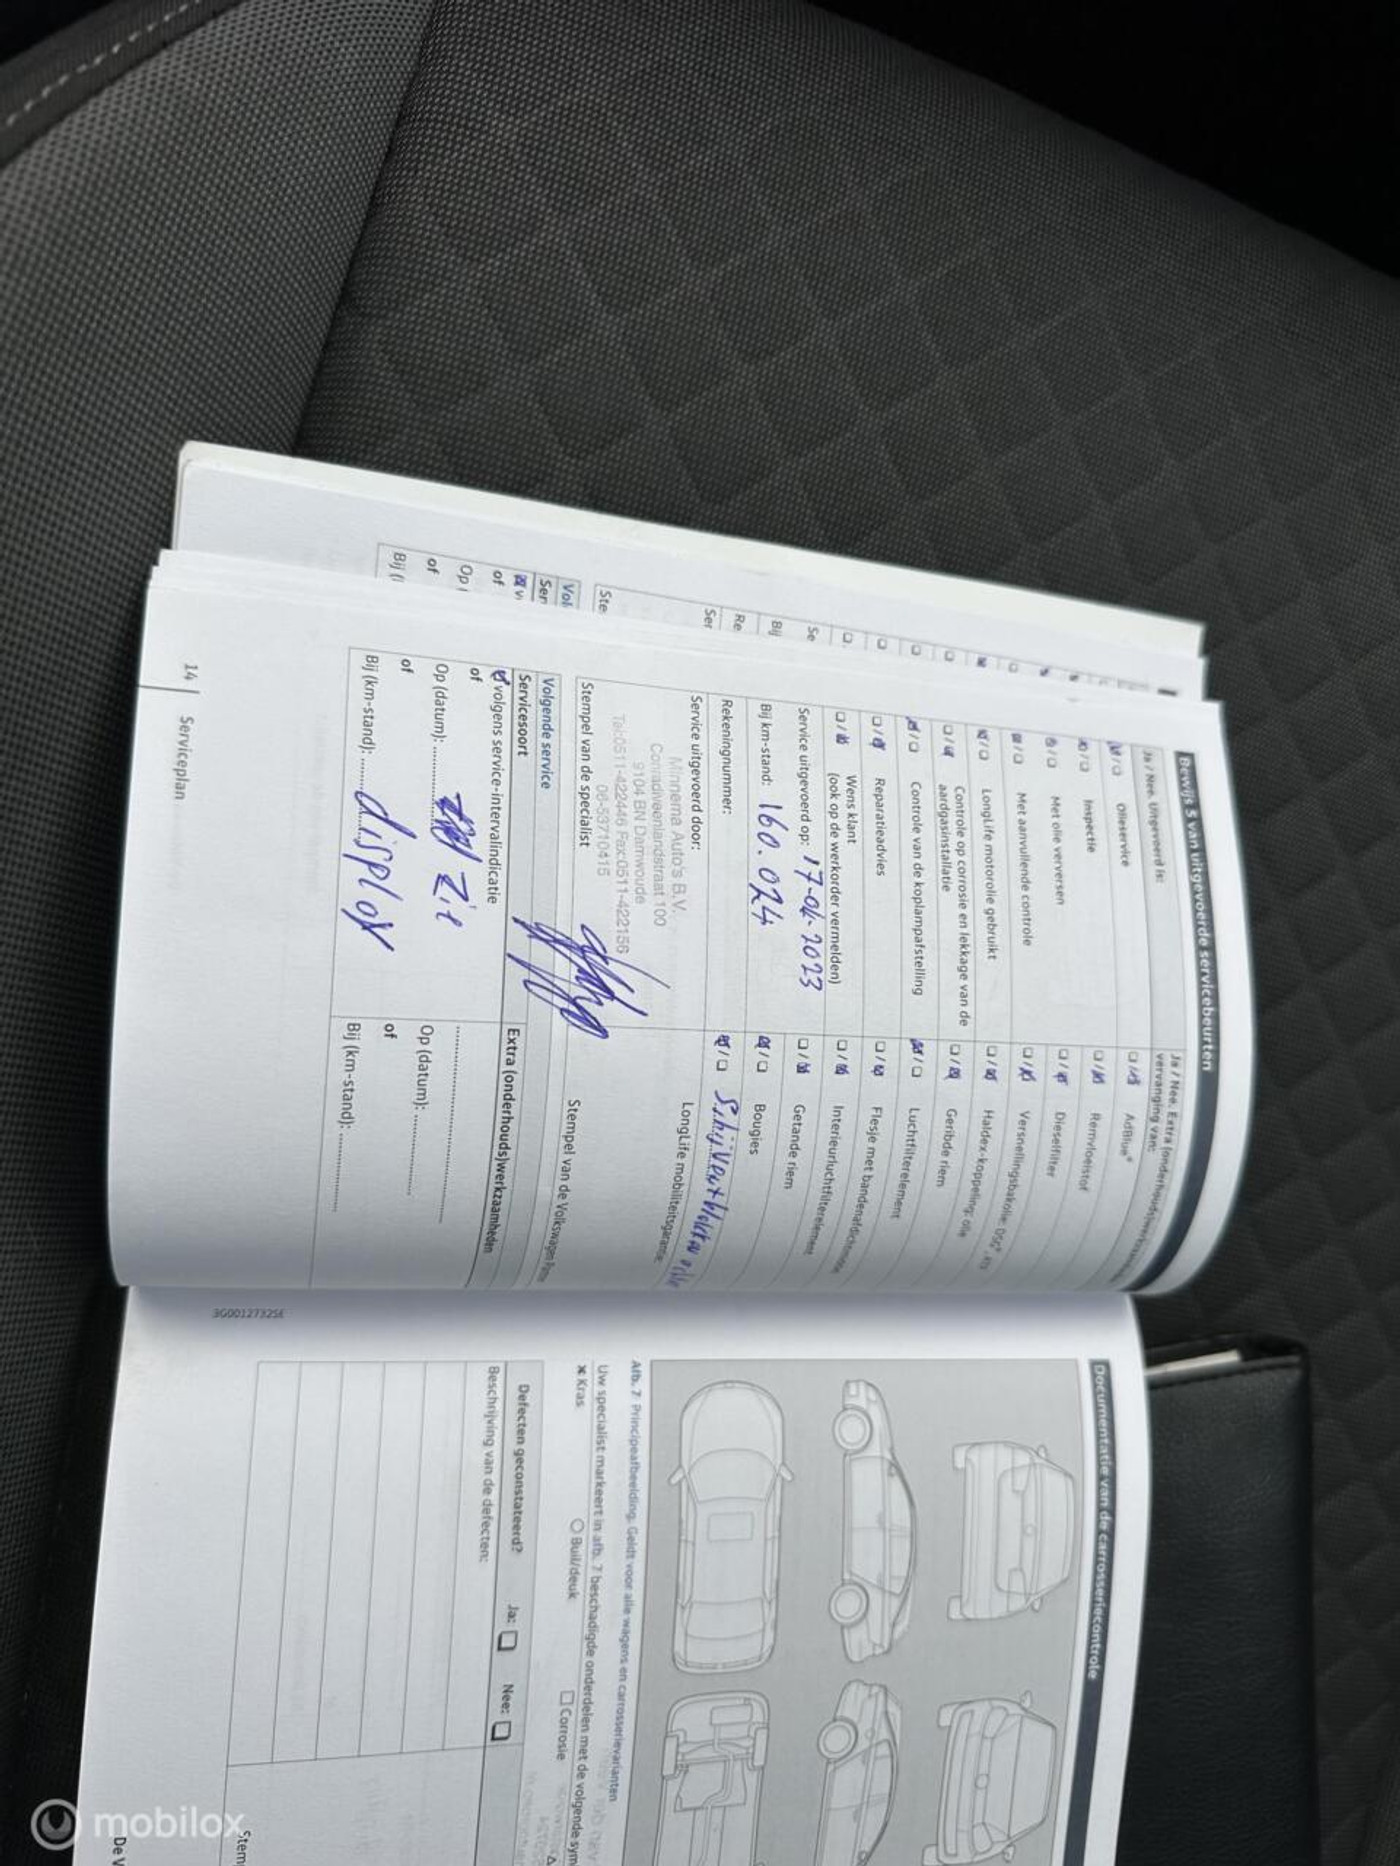 Bewijs 5 van uitgevoerde servicebeurten
Ja / Nee. Uitgevoerd is:
Olieservice
Inspectie
Met olie verversen
Met aanvullende controle
LongLife motorolie gebruikt
Controle op corrosie en lekkage van de
aardgasinstallatie
Controle van de koplampafstelling
Reparatieadvies
Wens klant
(ook op de werkorder vermelden)
Service uitgevoerd op: 17-04-2023
Bij km-stand: 160.024
Rekeningnummer:
Service uitgevoerd door:
Minnema Auto's B.V.
9104 BN Damwoude
Tel:0511-422446 Fax:0511-422156
06-53710415
Stempel van de specialist
Ja / Nee. Extra (onderhouds)
vervanging van:
AdBlue®
Remvloeistof
Dieselfilter
Versnellingsbakolie: DSG®
Haldex-koppeling: olie
Geribde riem
Luchtfilterelement
Flesje met
Interieurluchtfilterelement
Getande riem
Bougies
LongLife mobiliteitsgarantie
Stempel van de Volkswagen
Volgende service
Servicesoort
volgens service-intervalindicatie
of
Op (datum):
of
Bij (km-stand): display
Extra (onderhouds)werkzaamheden
Op (datum):
of
Bij (km-stand):
14 Serviceplan
Vol
Ser
of
Op
of
Bij
Se
Bij
Re
Ser
Ste
3G0012732SE
Documentatie van de carrosseriecontrole
Afb. 7 Principeafbeelding. Geldt voor alle wagens en carrosserievarianten
Uw specialist markeert in afb. 7 beschadigde onderdelen met de volgende sym
Kras
Buil/deuk
Corrosie
Defecten geconstateerd? Ja: Nee:
Beschrijving van de defecten:
Stem
De V
mobilox